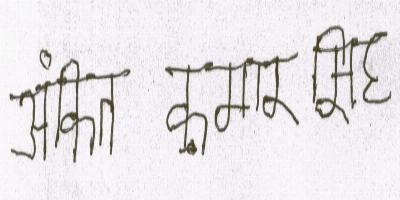 अंकित कुमार सिंह